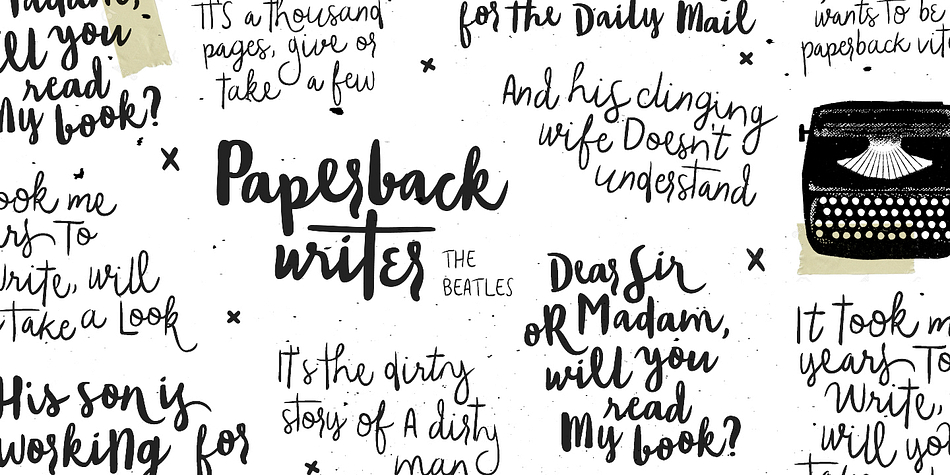 Madam,
ill you
read
My book?
It's a thousand
pages, give or
take a few
for the Daily Mail
wants to be
paperback
And his clinging
wife Doesn't
understand
Paperback
writer
THE
BEATLES
ook me
rs To
Write, will
Take a Look
Dear Sir
oR Madam,
will you
read
My book?
His son is
working for
It's the dirty
story of A dirty
man
It Took m
years To
Write,
will yo